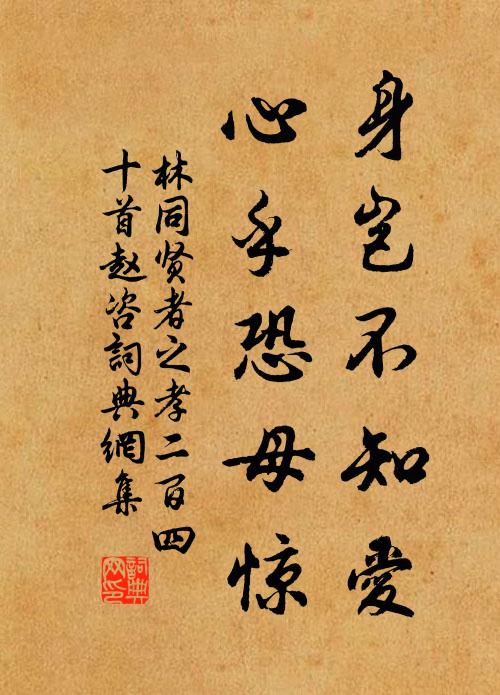 身岂不知愛
心乎恐母惊
林同贤者之孝二百四
十首赵咨詞典網集
詞典
网印